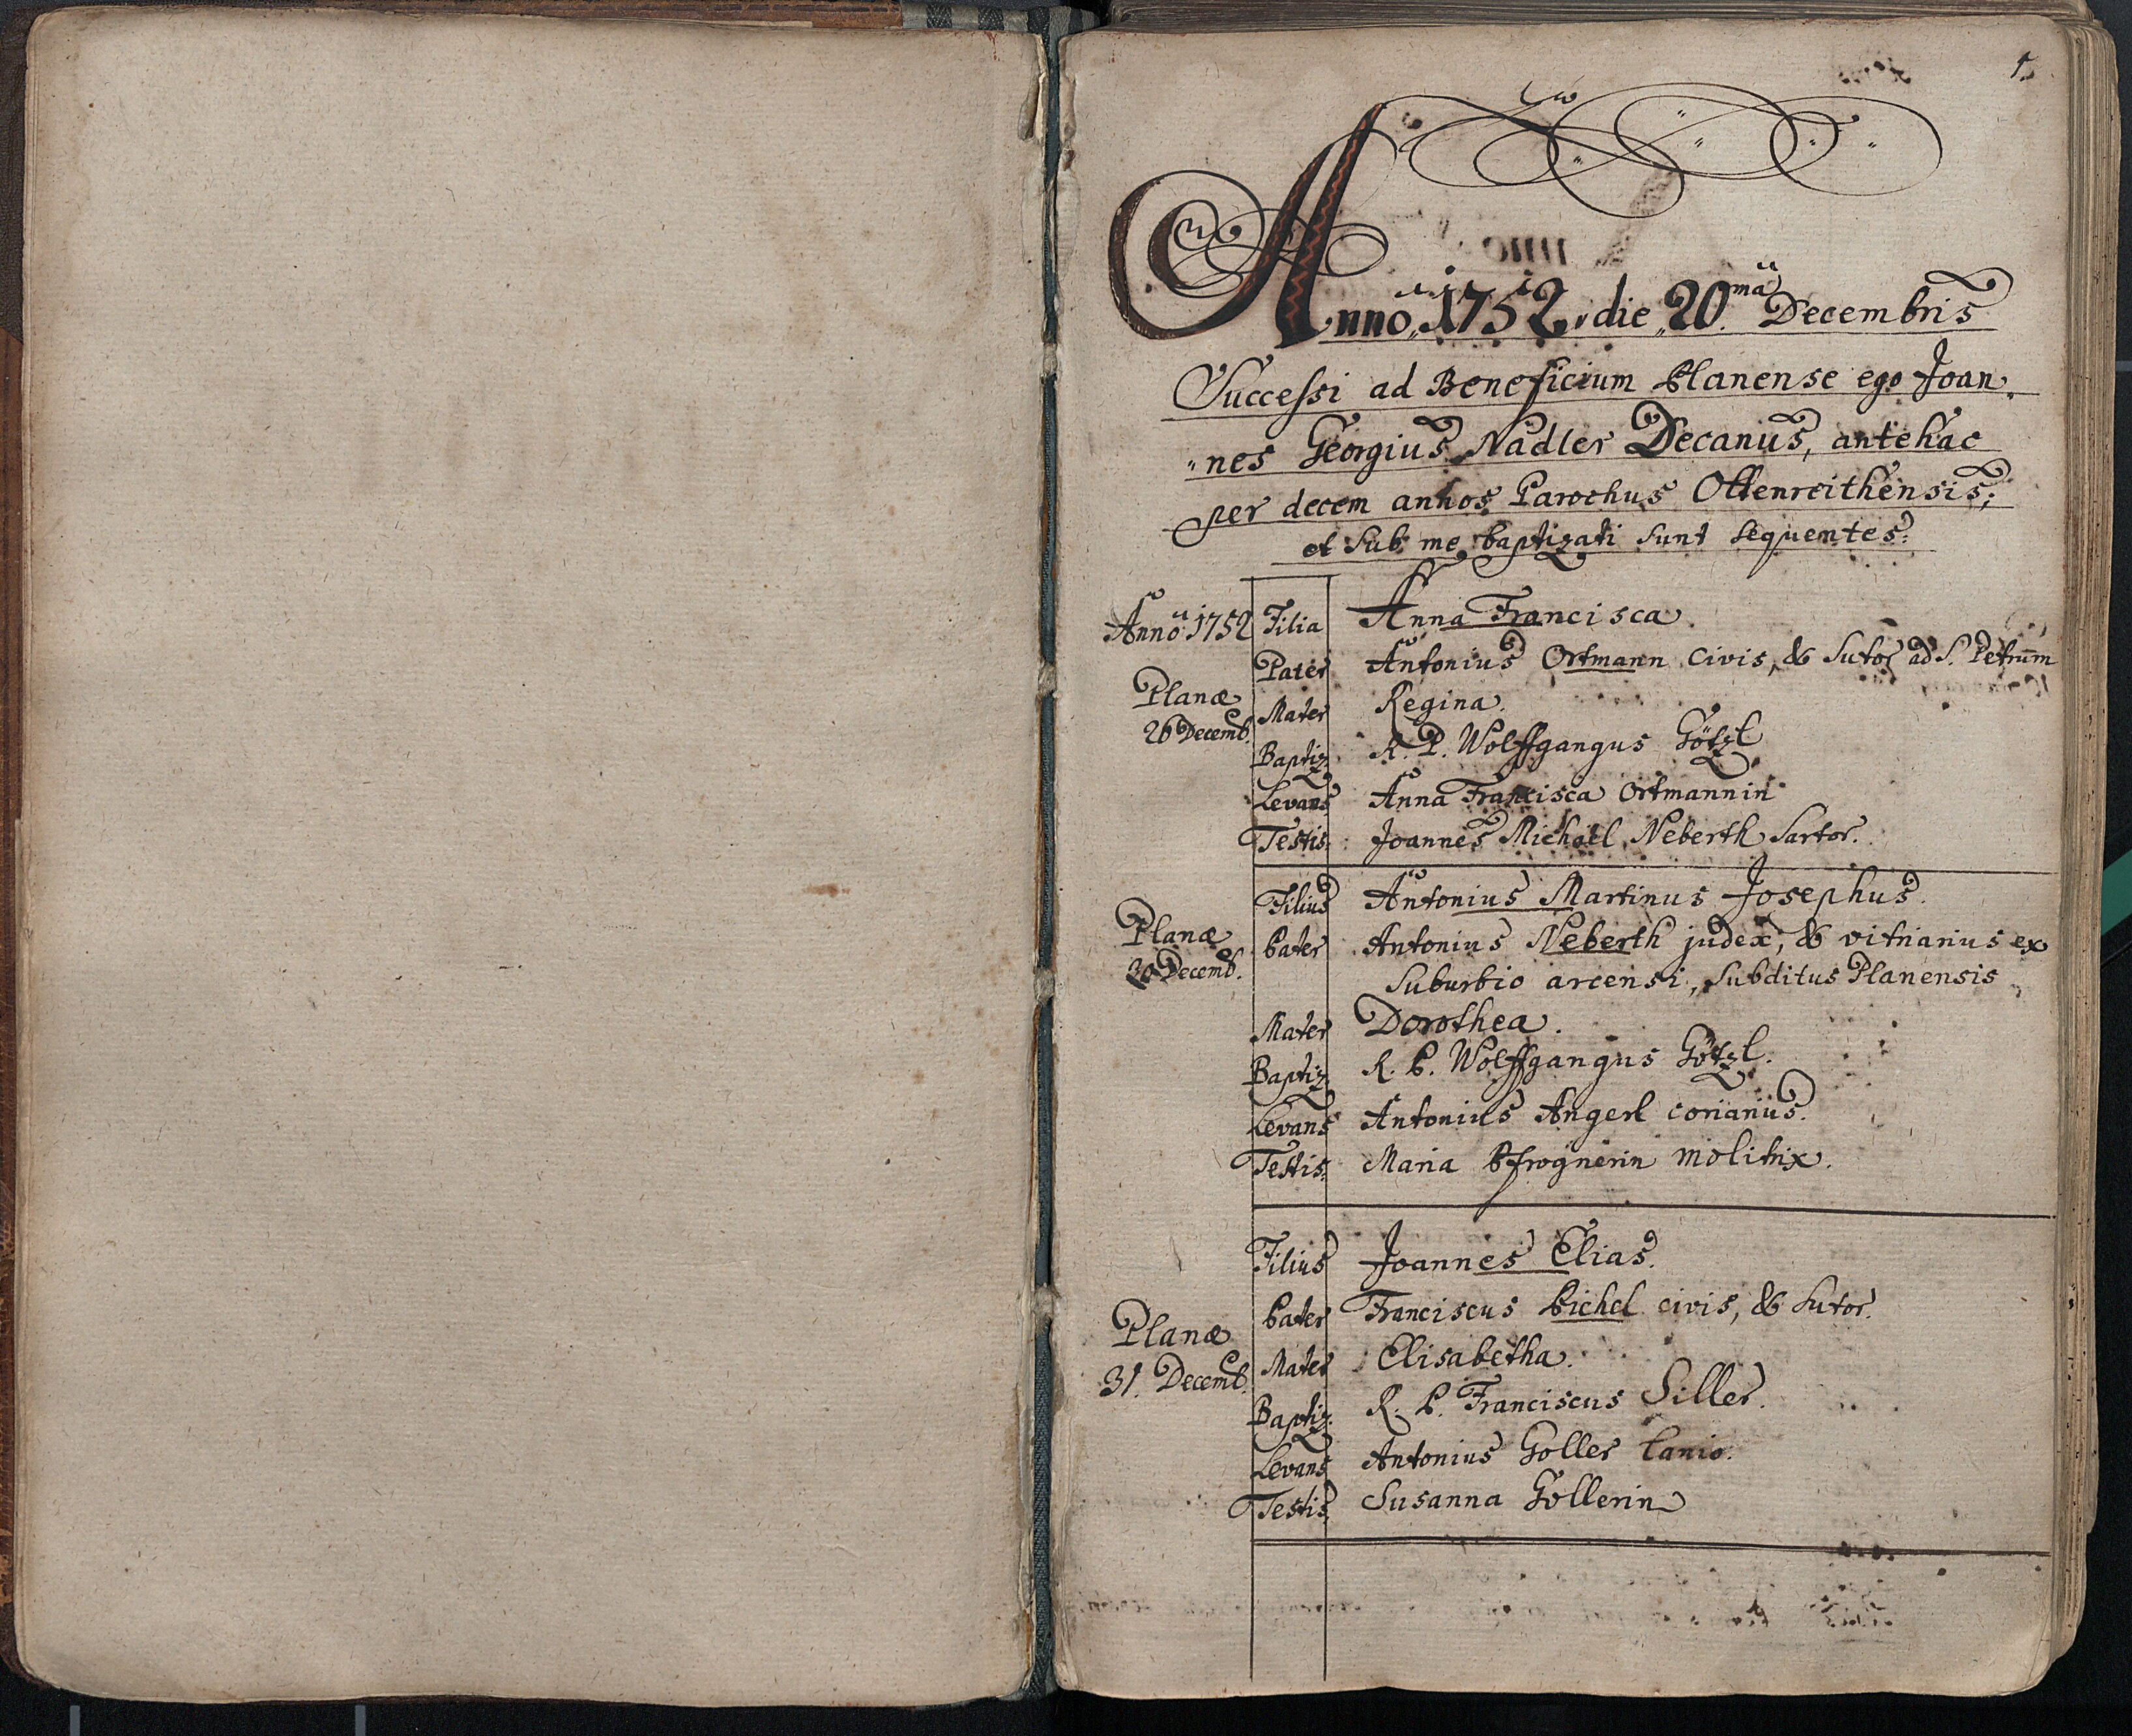 1.
Anno 1752 die 20.mâ Decembris
Successi ad Beneficium Planense ego Joan„
„nes Georgius Nadler Decanus, antehac
per decem annos Parochus Ottenreithensis;
et sub me baptizati sunt sequentes:
Anno 1752 Filia Anna Francisca.
Pater Antonius Ortmann civis, & Sutor ad S. Petrum
Planæ Mater Regina.
26 Decemb. Baptiz. R. P. Wolffgangus Götzl
Levans Anna Francisca Ortmannin
Testis. Joannes Michäel Neberth Sartor.
Filius Antonius Martinus Josephus.
Planæ Pater Antonius Neberth judex, & vitriarius ex
30 Decemb. Suburbio arcensi, Subditus Planensis
Mater Dorothea.
Baptiz. R. P. Wolffgangus Götzl.
Levans Antonius Angerl coriarius.
Testis. Maria Pfrognerin molitrix.
Filius Joannes Elias.
Pater Franciscus Pichel civis, & Sutor.
Planæ Mater Elisabetha.
31. Decemb. Baptiz. R. P. Franciscus Siller.
Levans Antonius Goller lanio.
Testis. Susanna Gollerin